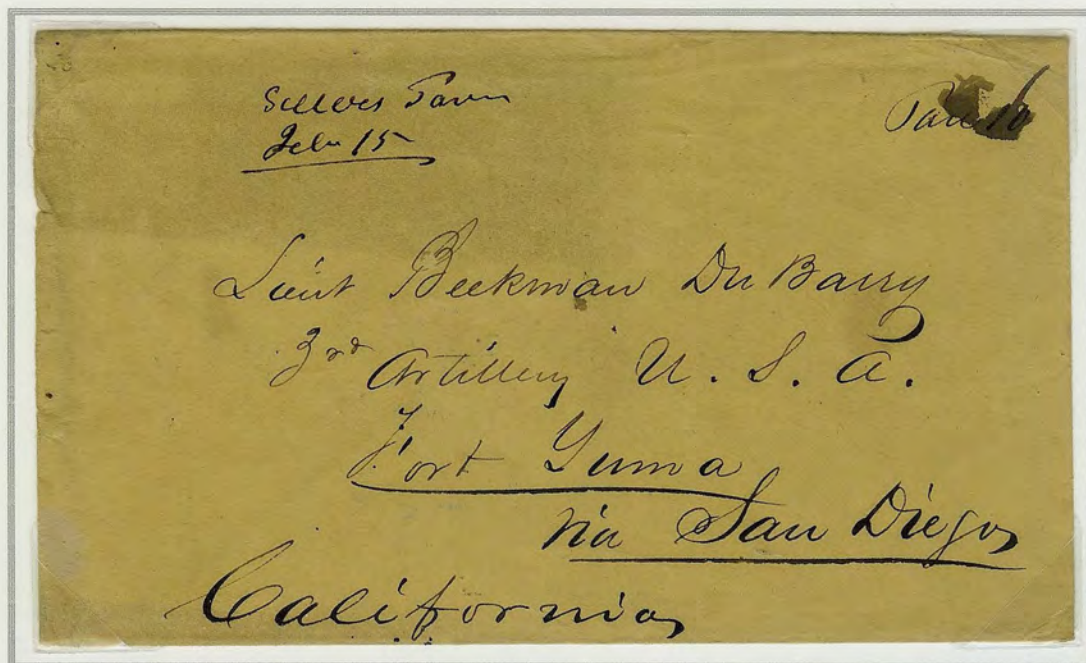 Sellers Tavern
Feby 15
Paid 10
Lieut Beekman Du Barry
3rd Artillery U. S. A.
Fort Yuma
via San Diego
California